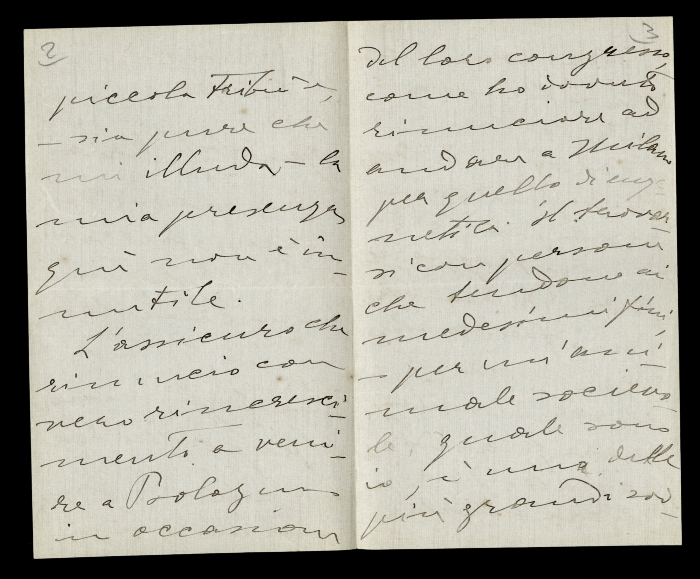 2
piccola tribù,
– sia pure che
mi illuda – la
mia presenza
quì non è in-
nutile.
L'assicuro che
rinuncio con
vero rincresci-
mento a veni-
re a Bologna
in occasione
3
del loro congresso,
come ho dovuto
rinunciare ad
andare a Milano
per quello di
Il trovar
si con persone
che tendono ai
medesimi fini,
– per un'ani-
male socievo
le, quale sono
io, è una delle
più grandi sod-